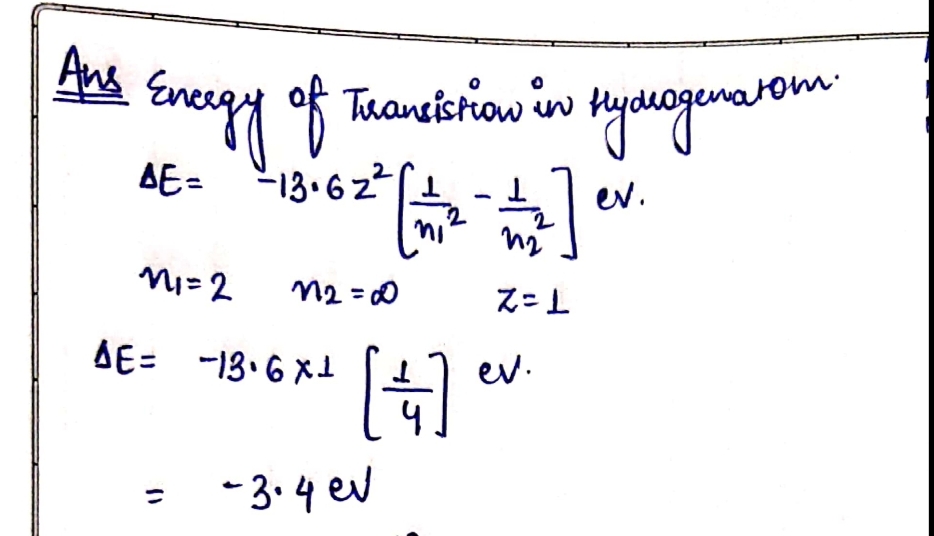 Ans Energy of Transistion in Hydrogenatom.
ΔE = -13.6 z² [1/n₁² - 1/n₂²] ev.
n₁ = 2 n₂ = ∞ Z = 1
ΔE = -13.6 x 1 [1/4] ev.
= -3.4 ev